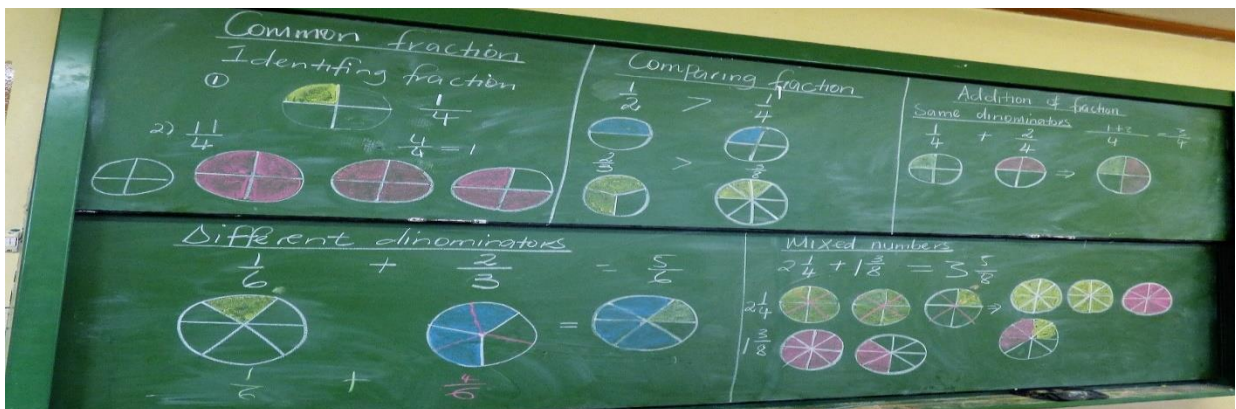 Common fraction
Identifing fraction
① 1/4
2) 11/4 4/4 = 1
Comparing fraction
1/2 > 1/4
2/3 > 3/8
Addition of fraction
Same dinominators
1/4 + 2/4 1+2/4 = 3/4
⇒
Different dinominators
1/6 + 2/3 = 5/6
=
1/6 + 4/6
Mixed numbers
2 1/4 + 1 3/8 = 3 5/8
2 1/4 ⇒
1 3/8